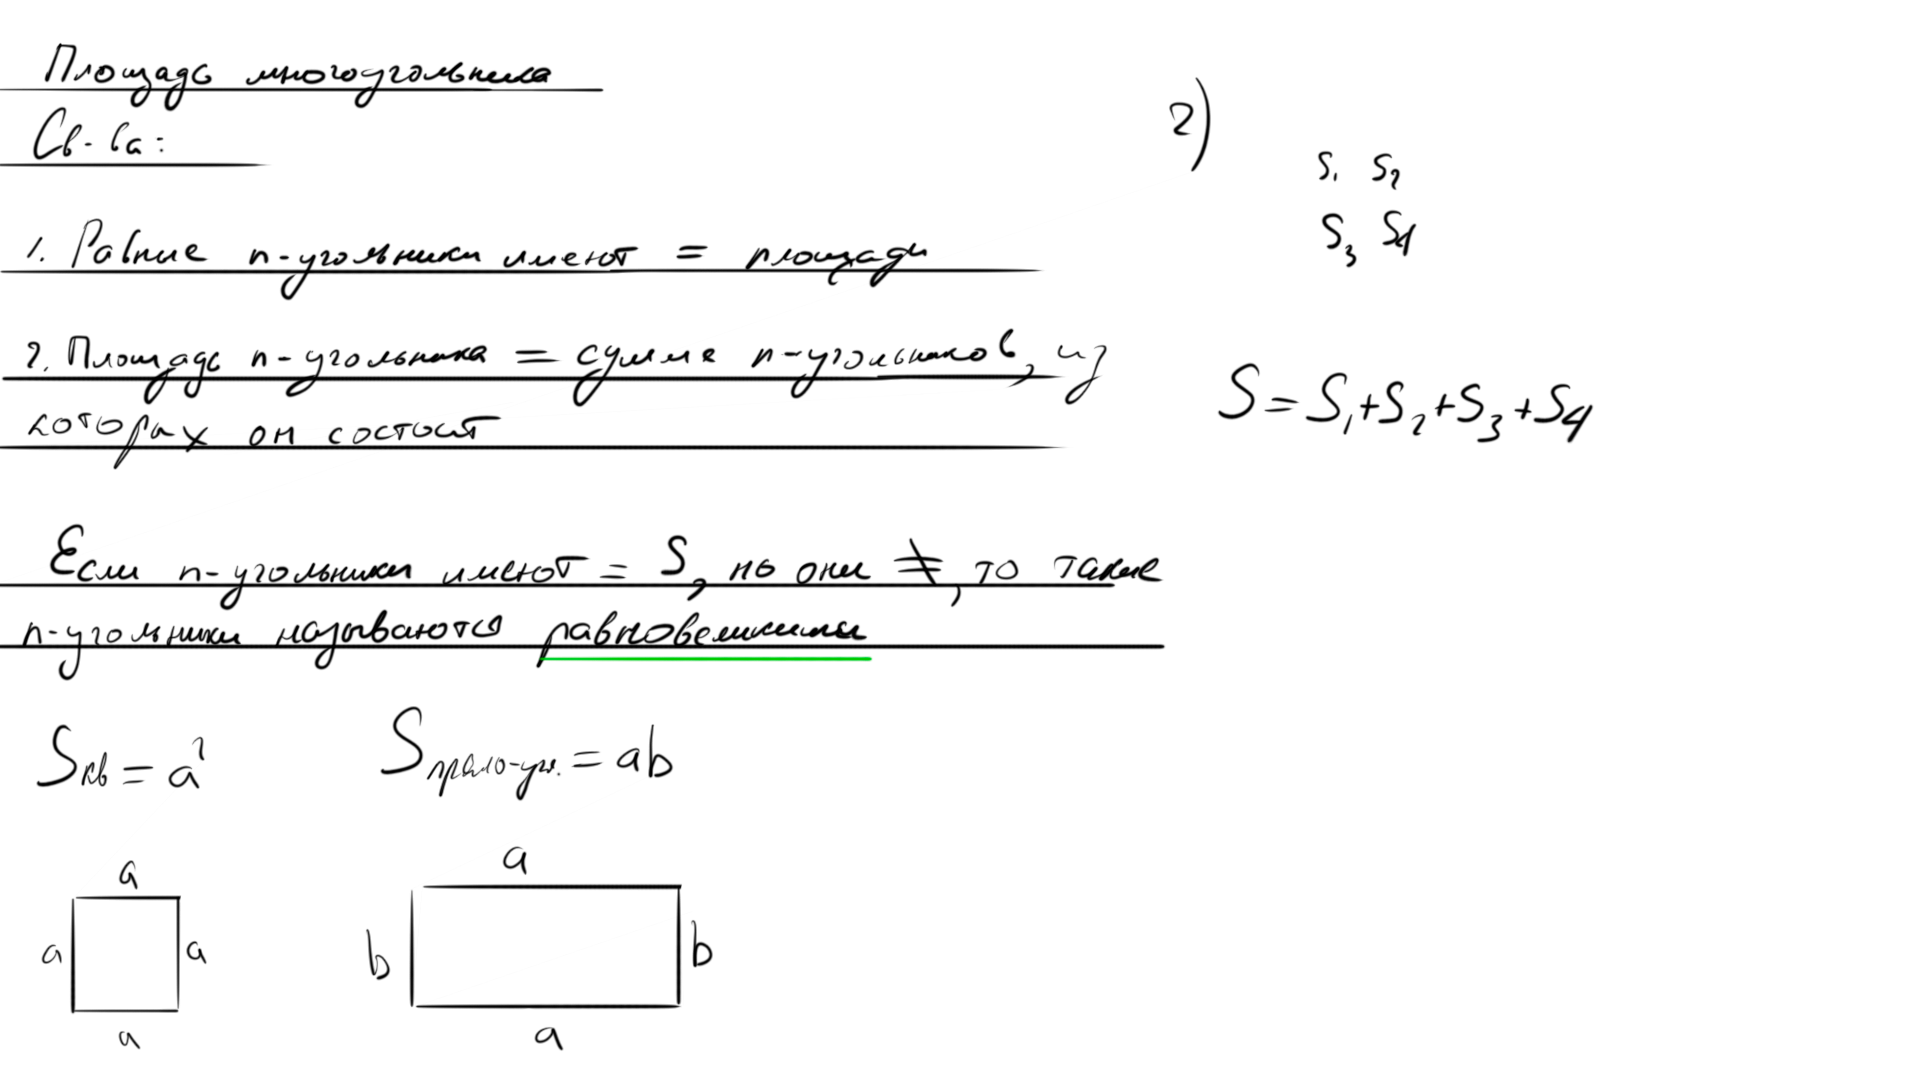 Площадь многоугольника
Св-ва:
1. Равные n-угольники имеют = площади
2. Площадь n-угольника = сумме n-угольников, из
которых он состоит
Если n-угольники имеют = S, но они ≠, то такие
n-угольники называются равновеликими
Sкв = a²
Sпрямо-уг. = ab
a
a a
a
a
b b
a
2)
S₁ S₂
S₃ S₄
S = S₁+S₂+S₃+S₄